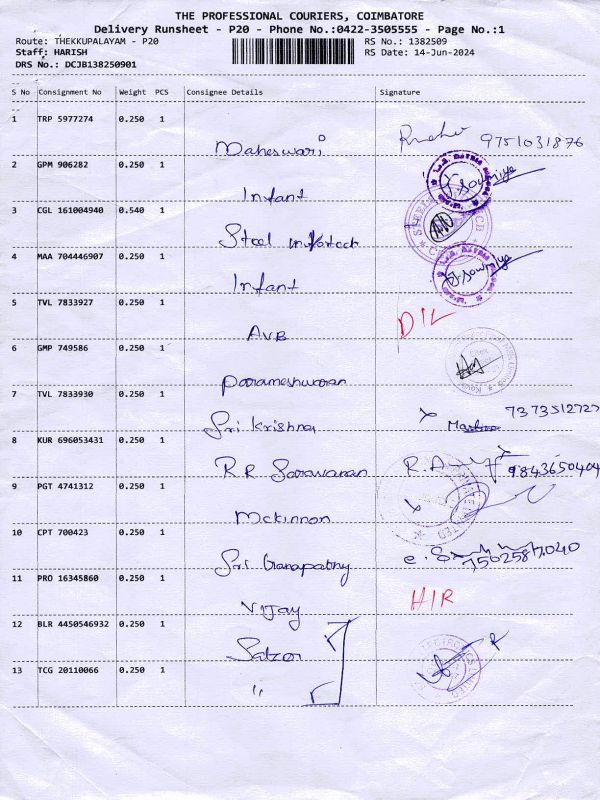 THE PROFESSIONAL COURIERS, COIMBATORE
Delivery Runsheet - P20 - Phone No.:0422-3505555 - Page No.:1
Route: THEKKUPALAYAM - P20 RS No.: 1382509
Staff: HARISH RS Date: 14-Jun-2024
DRS No.: DCJB138250901
S No Consignment No Weight PCS Consignee Details Signature
1 TRP 5977274 0.250 1
Maheswari 9751031876
2 GPM 906282 0.250 1
Infant J. Sowmiya
3 CGL 161004940 0.540 1
Steel
4 MAA 704446907 0.250 1
Infant J. Sowmiya
5 TVL 7833927 0.250 1
AVB DIL
6 GMP 749586 0.250 1
Parameshwaran
7 TVL 7833930 0.250 1
Sri Krishna
8 KUR 696053431 0.250 1
R.R Saravanan 9843650404
9 PGT 4741312 0.250 1
Mckinnon
10 CPT 700423 0.250 1
Sri Ganapathy
11 PRO 16345860 0.250 1
Vijay HIR
12 BLR 4450546932 0.250 1
Satzon
13 TCG 20110066 0.250 1
"